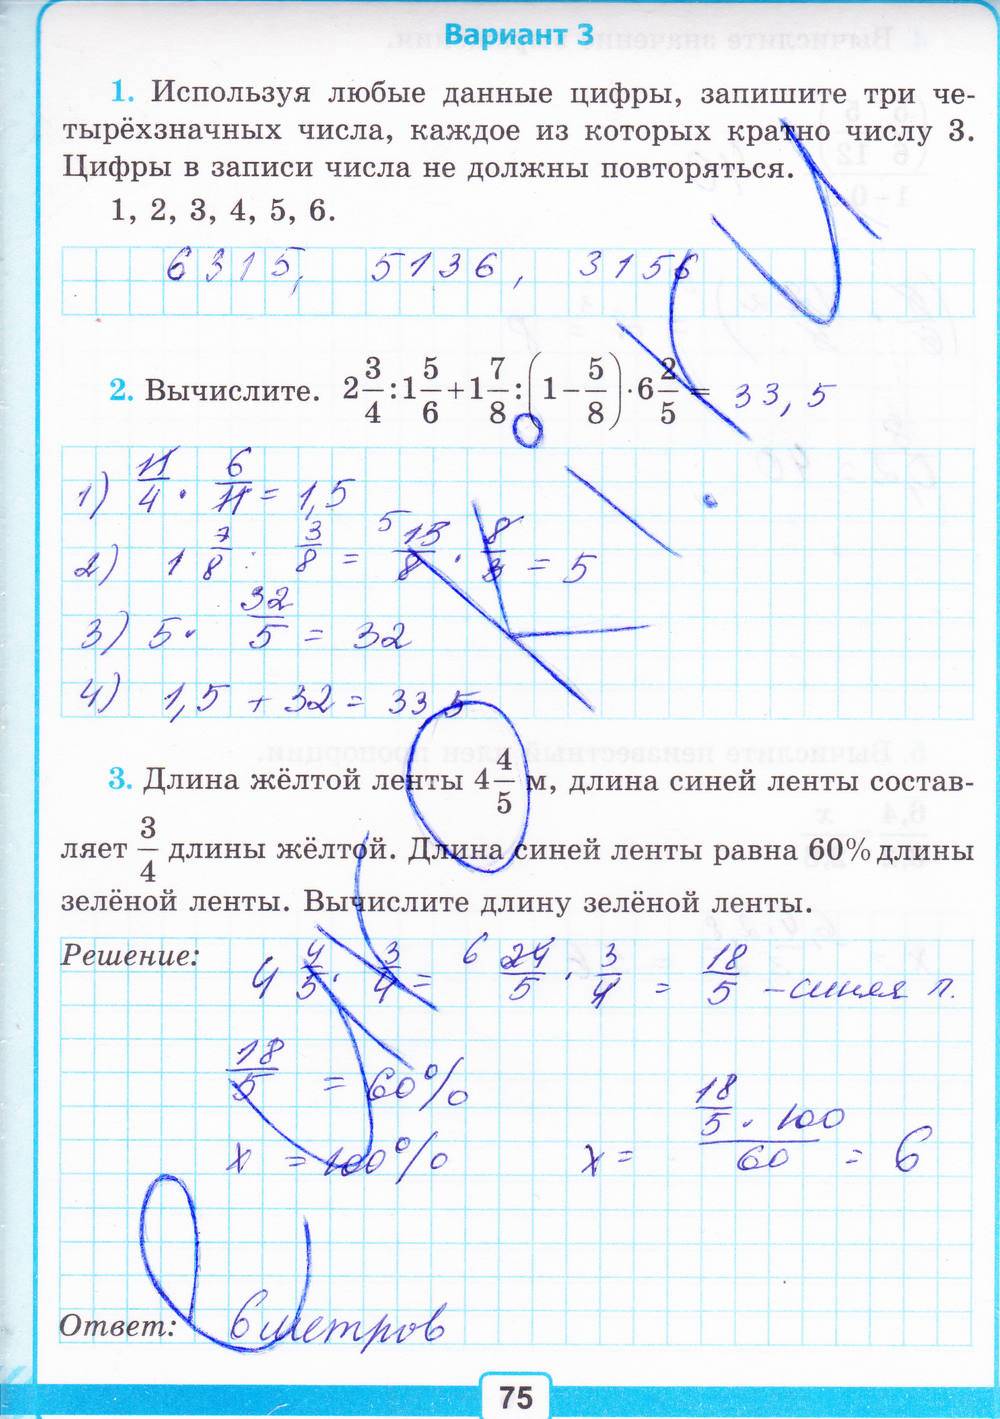 Вариант 3
1. Используя любые данные цифры, запишите три че-
тырёхзначных числа, каждое из которых кратно числу 3.
Цифры в записи числа не должны повторяться.
1, 2, 3, 4, 5, 6.
6315, 5136, 3156
2. Вычислите. 2 3/4 : 1 5/6 + 1 7/8 : (1 − 5/8) · 6 2/5 = 33,5
1) 11/4 · 6/11 = 1,5
2) 1 7/8 : 3/8 = 5 15/8 · 8/3 = 5
3) 5 · 32/5 = 32
4) 1,5 + 32 = 33,5
3. Длина жёлтой ленты 4 4/5 м, длина синей ленты состав-
ляет 3/4 длины жёлтой. Длина синей ленты равна 60% длины
зелёной ленты. Вычислите длину зелёной ленты.
Решение: 4 4/5 · 3/4 = 6 24/5 · 3/4 = 18/5 – синяя л.
18/5 = 60%
x = 100% x = 18/5 · 100 / 60 = 6
Ответ: 6 метров
75